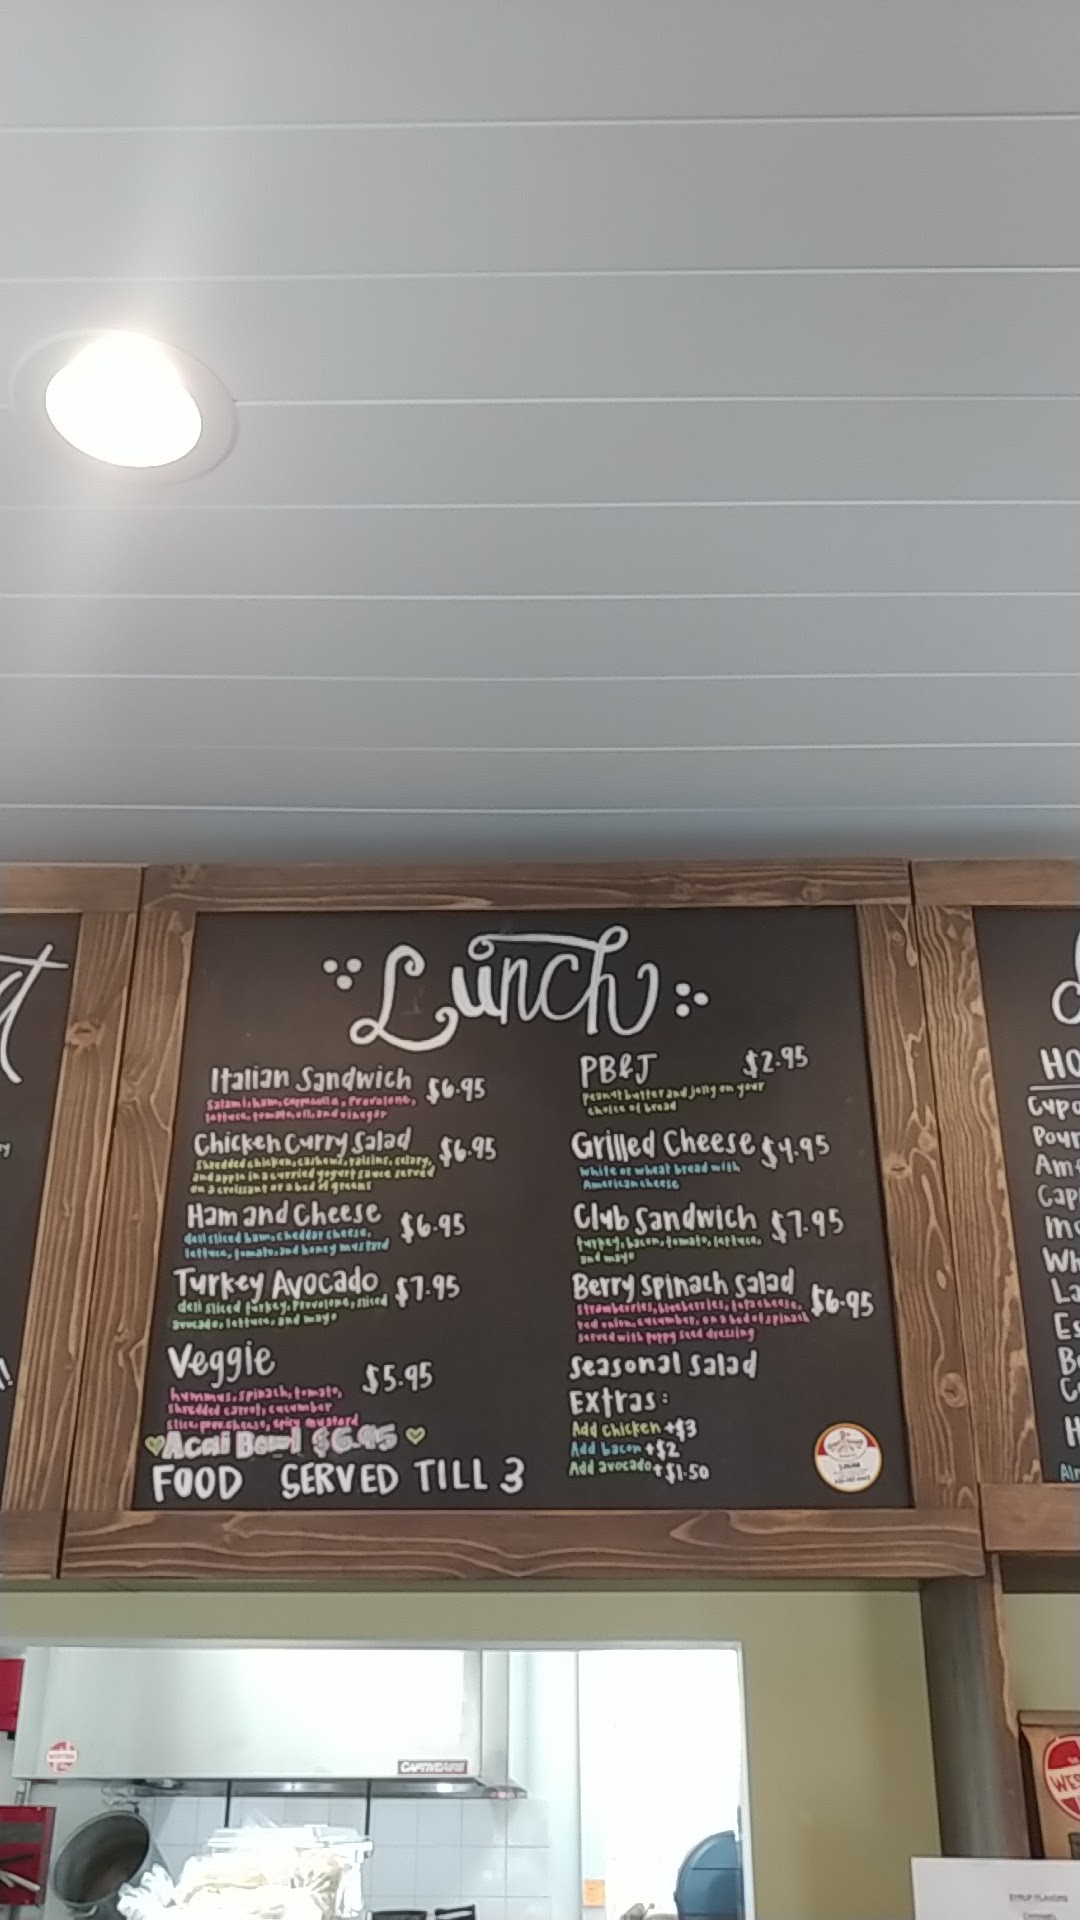 Lunch
Italian Sandwich $6.95
Salami, ham, cappacolla, Provolone,
lettuce, tomato, oil, and vinegar
Chicken Curry Salad $6.95
Shredded chicken, cashews, raisins, celery,
and apple in a curried yogurt sauce served
on a croissant or a bed of greens
Ham and Cheese $6.95
deli sliced ham, cheddar cheese,
lettuce, tomato, and honey mustard
Turkey Avocado $7.95
deli sliced turkey, Provolone, sliced
avocado, lettuce, and mayo
Veggie $5.95
hummus, spinach, tomato,
shredded carrot, cucumber
slice, cheese, spicy mustard
Acai Bowl $6.95
FOOD SERVED TILL 3
PB&J $2.95
Peanut butter and jelly on your
choice of bread
Grilled Cheese $4.95
white or wheat bread with
American cheese
Club Sandwich $7.95
turkey, bacon, tomato, lettuce,
and mayo
Berry Spinach Salad $6.95
Strawberries, blueberries, feta cheese,
red onion, cucumber, on a bed of spinach
served with poppy seed dressing
Seasonal Salad
Extras:
Add chicken +$3
Add bacon +$2
Add avocado +$1.50
HO
Cupo
Pour
Am
Cap
Mo
Wh
La
Es
Co
H
Alm
CAPTIVEAIRE
WES
SYRUP FLAVORS